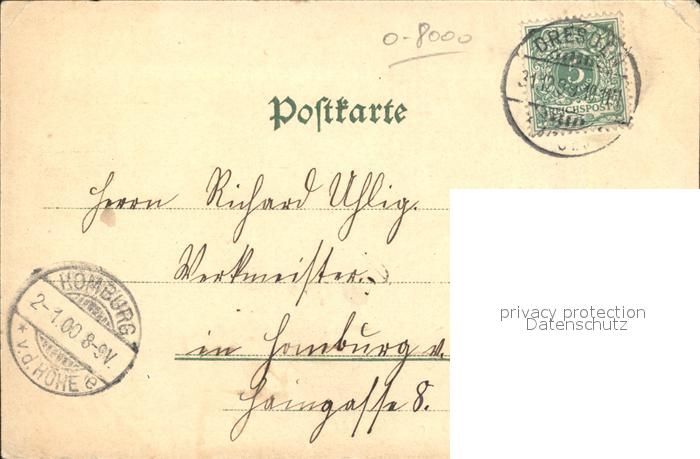 0-8000
DRESDEN
31.12.99
5
REICHSPOST
Postkarte
Herrn Richard Uhlig.
Werkmeister.
in Homburg v.
Haingasse 8.
HOMBURG
2-1.00 8-9V.
* v.d. HÖHE e
privacy protection
Datenschutz